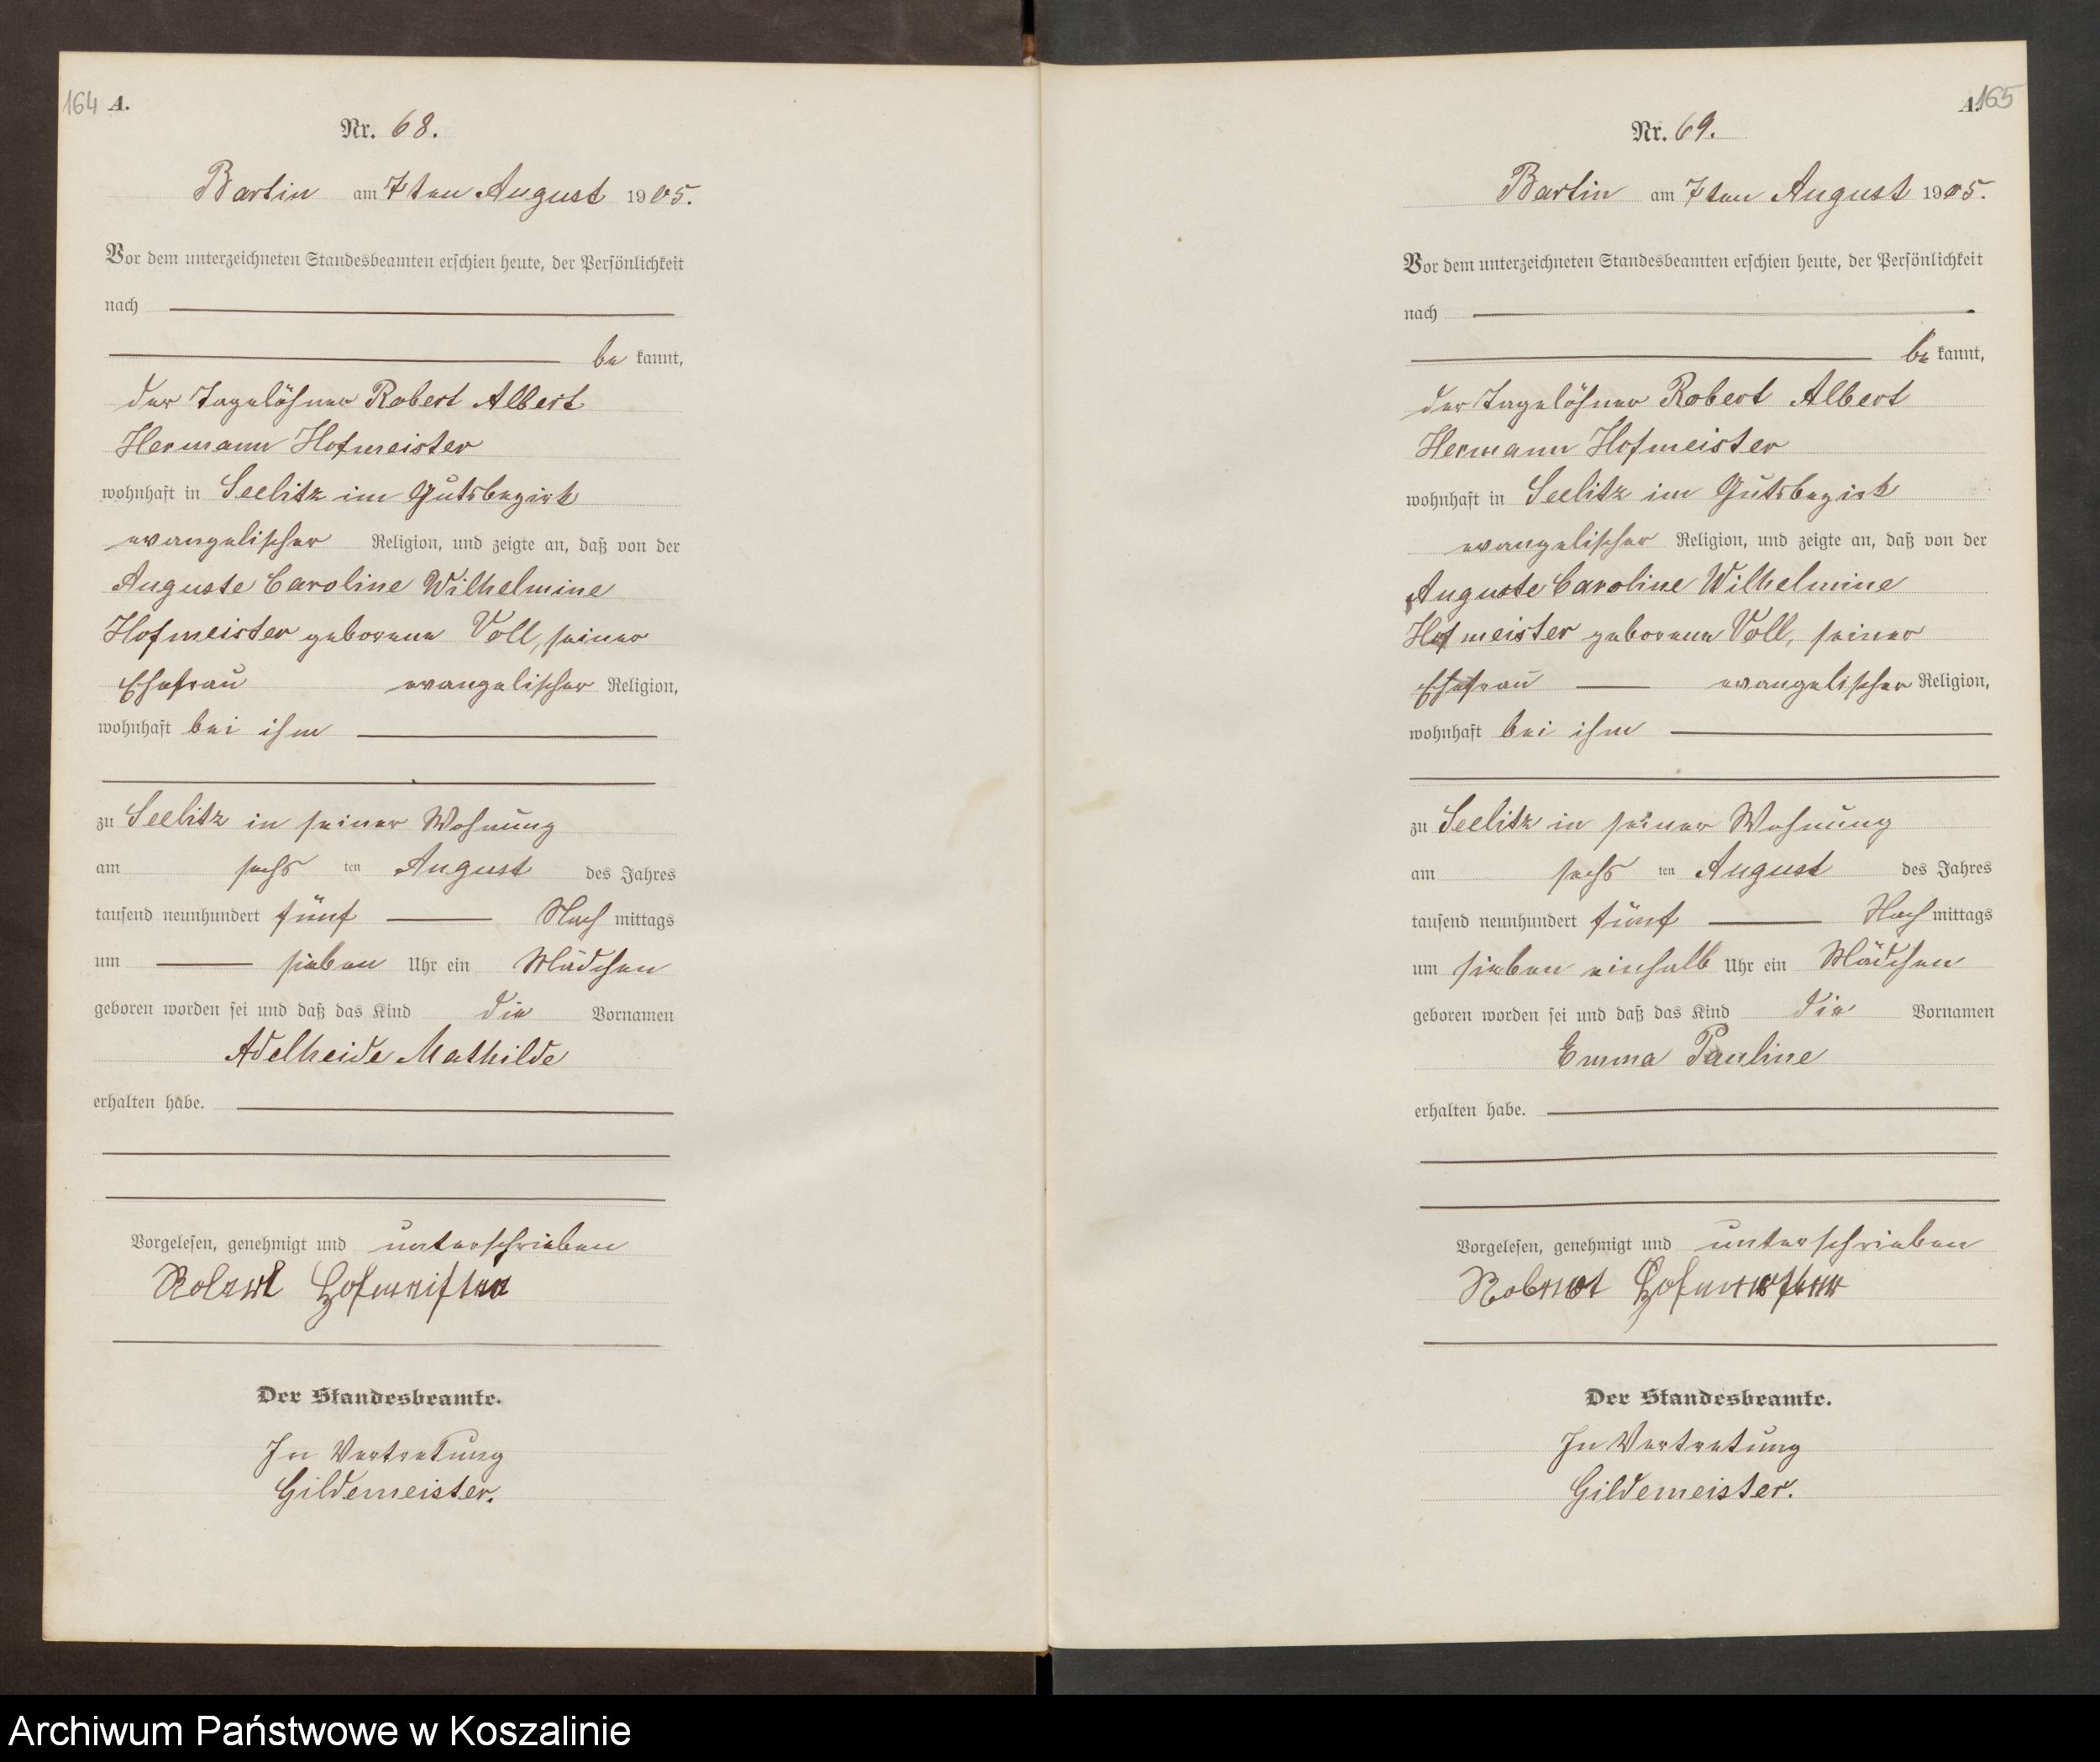 164 A.
Nr. 68.
Bartin am 7ten August 1905.
Vor dem unterzeichneten Standesbeamten erschien heute, der Persönlichkeit
nach
be kannt,
der Tagelöhner Robert Albert
Hermann Hofmeister
wohnhaft in Seelitz im Gutsbezirk
evangelischer Religion, und zeigte an, daß von der
Auguste Caroline Wilhelmine
Hofmeister geborene Voll, seiner
Ehefrau evangelischer Religion,
wohnhaft bei ihm
zu Seelitz in seiner Wohnung
am sechs ten August des Jahres
tausend neunhundert fünf Nach mittags
um sieben Uhr ein Mädchen
geboren worden sei und daß das Kind die Vornamen
Adelheide Mathilde
erhalten habe.
Vorgelesen, genehmigt und unterschrieben
Robert Hofmeister
Der Standesbeamte.
In Vertretung
Gildemeister.
A. 165
Nr. 69.
Bartin am 7ten August 1905.
Vor dem unterzeichneten Standesbeamten erschien heute, der Persönlichkeit
nach
be kannt,
der Tagelöhner Robert Albert
Hermann Hofmeister
wohnhaft in Seelitz im Gutsbezirk
evangelischer Religion, und zeigte an, daß von der
Auguste Caroline Wilhelmine
Hofmeister geborene Voll, seiner
Ehefrau evangelischer Religion,
wohnhaft bei ihm
zu Seelitz in seiner Wohnung
am sechs ten August des Jahres
tausend neunhundert fünf Nach mittags
um sieben einhalb Uhr ein Mädchen
geboren worden sei und daß das Kind die Vornamen
Emma Pauline
erhalten habe.
Vorgelesen, genehmigt und unterschrieben
Robert Hofmeister
Der Standesbeamte.
In Vertretung
Gildemeister.
Archiwum Państwowe w Koszalinie